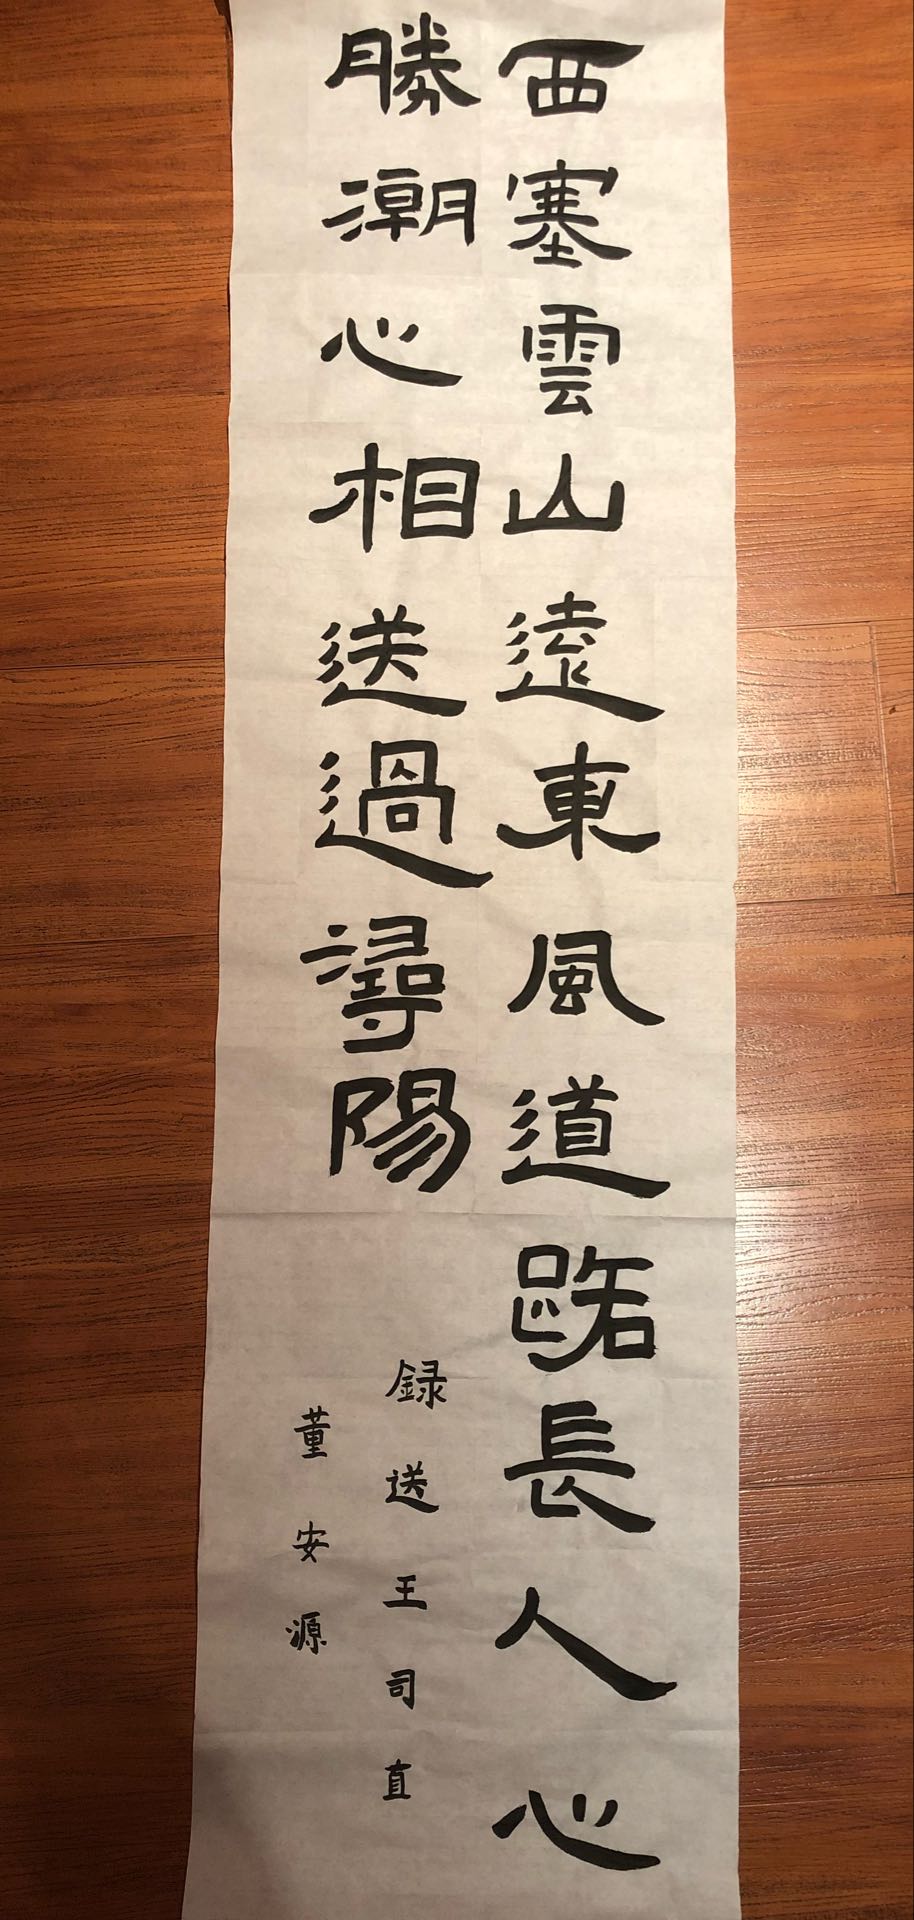 西塞雲山遠東風道路長人心
勝潮心相送過潯陽
録送王司直
董安源